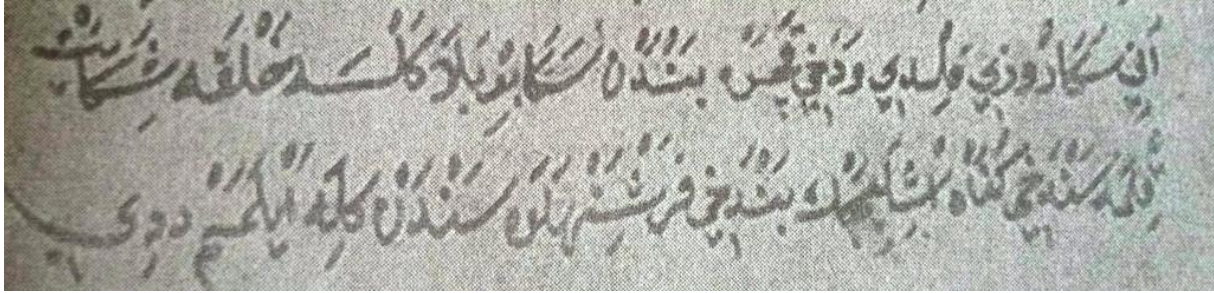 اني سكا روزي قلدي ودخي قچن بندن سكا بر بلا كلسه خلقه شكايت
قلمه سن دخي كناه اشليجك بن دخي فرشتهلره سندن كله ديدي